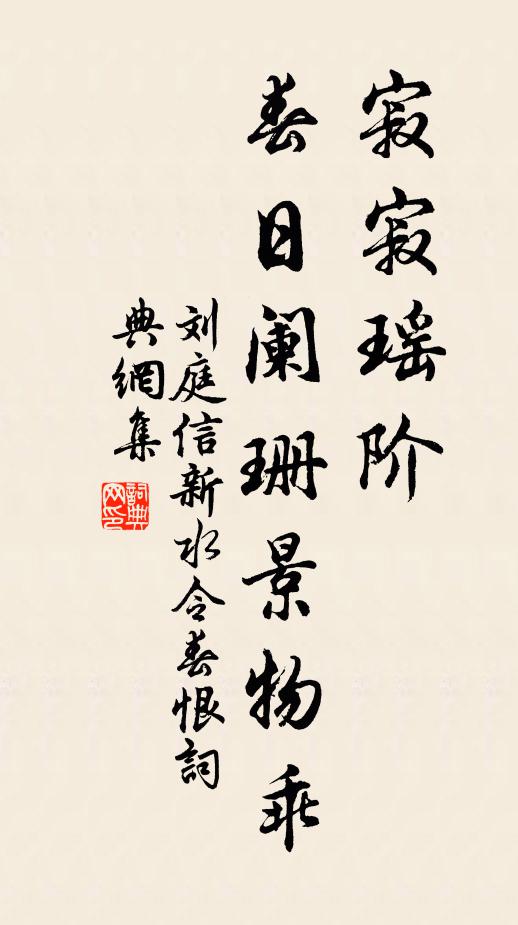 寂寂瑶阶
春日阑珊景物乖
刘庭信新水令春恨詞
典網集
詞典
网印